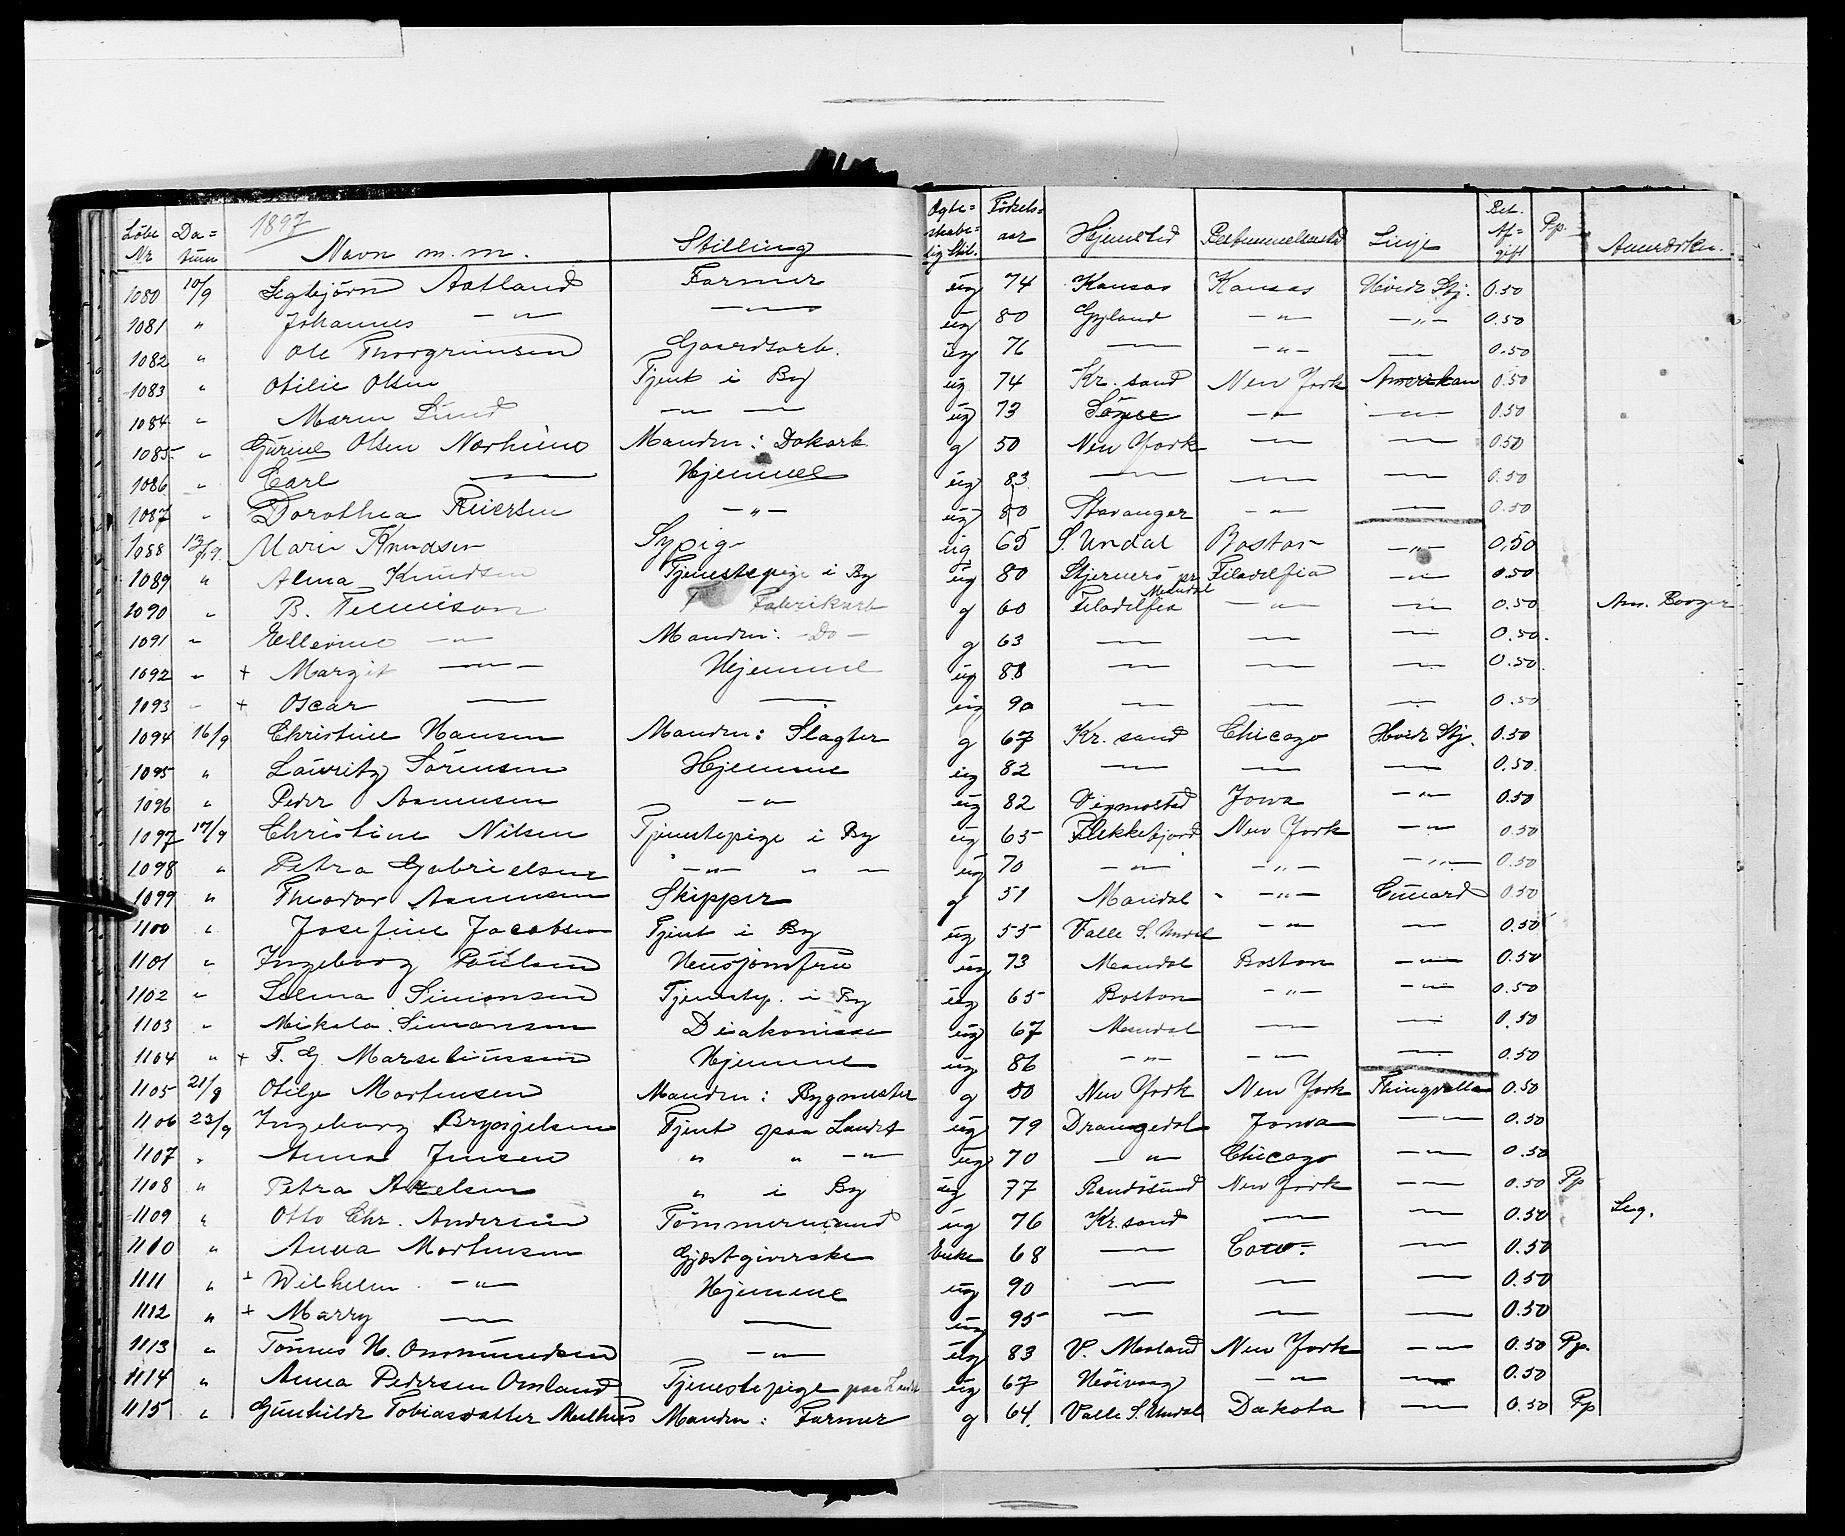 1897
Løbe Nr Da= tum Navn m. m. Stilling Ægte= skabe= lig Stil. Fødsels= aar Hjemsted Bestemmelsessted Linje Bet. Af= gift Pp. Anmerkn.
1080 10/9 Segbjørn Aatland Farmer ug 74 Kansas Kansas Hvide Stj. 0.50
1081 " Johannes —"— —"— ug 80 Gyland —"— —"— 0.50
1082 " Ole Thorgrimsen Gaardsarb. ug 76 — —"— — 0.50
1083 " Otilie Olsen Tjent i By ug 74 Kr. sand New York Amerikan 0.50
1084 " Maren Lund —"— — ug 73 Søgne —"— —"— 0.50
1085 " Gurine Olsen Nærheim Manden: Dokarb. g 50 New York — — 0.50
1086 " Carl — Hjemme ug 83 — — — 0.50
1087 " Dorothea Reiersen —"— ug 80 Stavanger —"— — 0.50
1088 13/9 Marie Knudsen Sypige ug 65 S. Undal Boston —"— 0.50
1089 " Alma Knudsen Tjenestepige i By ug 80 Stjernerø pr Mandal Filadelfia —"— 0.50
1090 " B. Tennison Fabrikarb g 60 Filadelfia —"— — 0.50 Am. Borger
1091 " Ellevine —"— Manden: —Do— g 63 — — — 0.50
1092 " + Margit —"— Hjemme ug 88 — — — 0.50
1093 " + Oscar — — ug 90 — — — 0.50
1094 16/9 Christine Hansen Manden: Slagter g 67 Kr. sand Chicago Hvide Stj. 0.50
1095 " Lauritz Sørensen Hjemme ug 82 — — — 0.50
1096 " Peder Asmusen —"— ug 82 Vigmostad Jowa —"— 0.50
1097 17/9 Christine Nilsen Tjenestepige i By ug 65 Flekkefjord New York —"— 0.50
1098 " Petra Gabrielsen " —"— " — ug 70 —"— —"— —"— 0.50
1099 " Theodor Asmusen Skipper g 51 Mandal —"— Cunard 0.50
1100 " Josefine Jacobsen Tjent i By ug 55 Valle S. Undal —"— — 0.50
1101 " Ingeborg Poulsen Husjomfru ug 73 Mandal Boston —"— 0.50
1102 " Selma Simonsen Tjenestep. i By ug 65 Boston —"— —"— 0.50
1103 " Mikala Simonsen Diakonisse ug 67 Mandal — — 0.50
1104 " + T. G. Marseliussen Hjemme ug 86 —"— —"— — 0.50
1105 21/9 Otilje Mortensen Manden: Bygmester g 50 New York New York Thingvalla 0.50
1106 23/9 Ingeborg Brynjelsen Tjent paa Landet ug 79 Drangedal Jowa —"— 0.50
1107 " Anna Jensen " " —"— ug 70 —"— Chicago —"— 0.50
1108 " Petra Axelsen " i By ug 77 Randøsund New York —"— 0.50 Pp
1109 " Otto Chr. Andersen Tømmermand ug 76 Kr. sand — —"— 0.50 Leg.
1110 " Anna Mortensen Gjæstgiverske Enke 68 — — 0.50
1111 " + Wilhelm —"— Hjemme ug 90 — — — 0.50
1112 " + Marry — — ug 95 — — — 0.50
1113 " Tønnes H. Ommundsen —"— ug 83 V. Moland New York —"— 0.50 Pp.
1114 " Anna Pedersen Omland Tjenestepige paa Landet ug 67 Høivaag —"— —"— 0.50
1115 " Gunhilde Tobiasdatter Melhus Manden: Farmer g 64 Valle S. Undal Dakota — 0.50 Pp